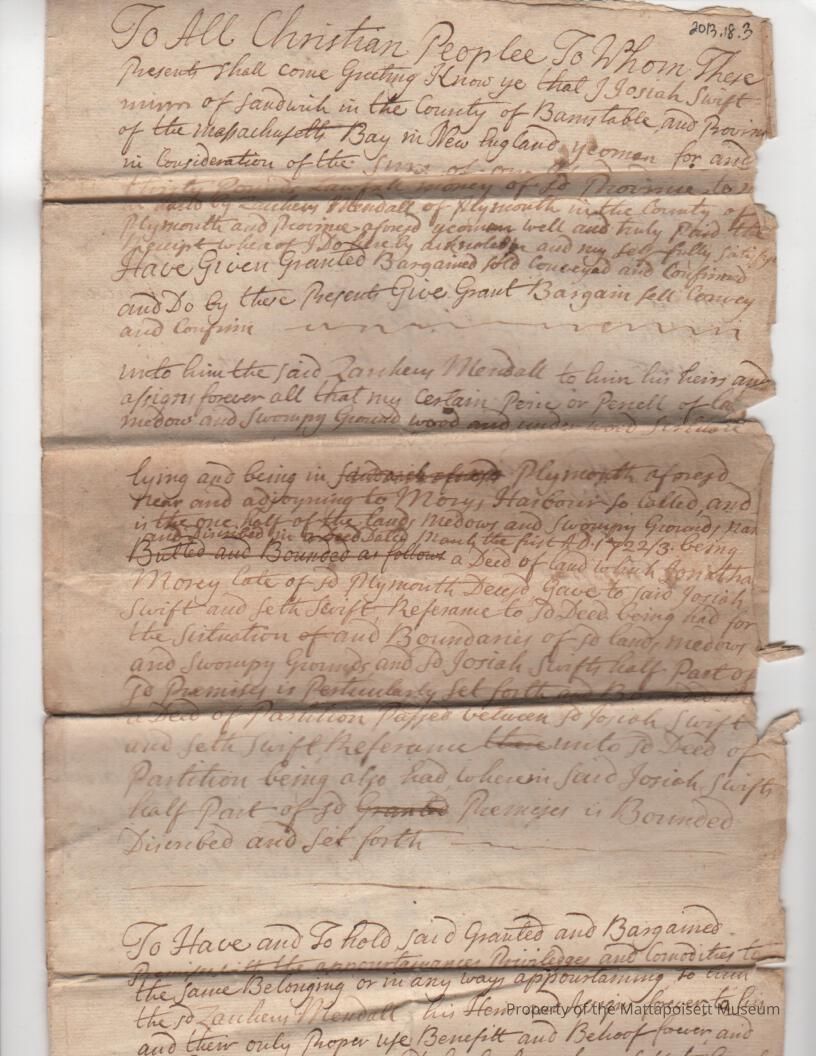 2013.18.3
To All Christian Peoplee To Whom These
Presents shall come Greeting Know ye that I Josiah Swift
of Sandwich in the County of Barnstable and Provin
of the Massachusetts Bay in New England yeoman for and
in Consideration of the Sum of one
thirty Pounds money of sd Province to
by Zacheus Mendall of Plymouth in the County of
Plymouth and Province aforesd yeoman well and truly Paid the
receipt whereof I Do hereby and my self fully
Have Given Granted Bargained sold Conveyed and Confirmed
and Do by these Presents Give Grant Bargain sell Convey
and Confirm
unto him the said Zacheus Mendall to him his heirs and
assigns forever all that my Certain or of
medow and Swompy Ground wood and under wood
lying and being in Sandwich aforesd Plymouth aforesd
near and adjoyning to Morys Harbour so called, and
is the one half of the lands medows and Swompy Grounds
and in a Deed Dated March the first A:D: 1722/3 being
Butted and Bounded as follows a Deed of land which Jonatha
Morey late of sd Plymouth Decesd Gave to said Josiah
Swift and Seth Swift Referance to sd Deed being had for
the Situation of and Boundaries of sd lands medows
and Swompy Grounds and sd Josiah Swifts half Part of
sd Premises is Perticularly Set forth and
a Deed of Partition Passed between sd Josiah Swift
and Seth Swift Referance there unto sd Deed of
Partition being also had wherein said Josiah Swifts
half Part of sd Granted Premises is Bounded
Discribed and Set forth
To Have and To hold said Granted and Bargained
the appourtainances Priviledges and Comodities to
the same Belonging or in any ways appourtaining to him
the sd Zacheus Mendall his Heirs and forever to his
and their only Proper use Benefitt and Behoof forever and
Property of the Mattapoisett Museum